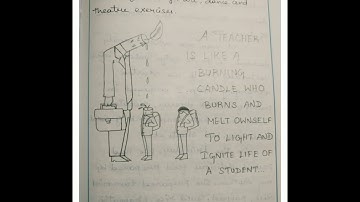 dance and
theatre exercises.
A TEACHER
IS LIKE A
BURNING
CANDLE WHO
BURNS AND
MELT OWNSELF
TO LIGHT AND
IGNITE LIFE OF
A STUDENT...